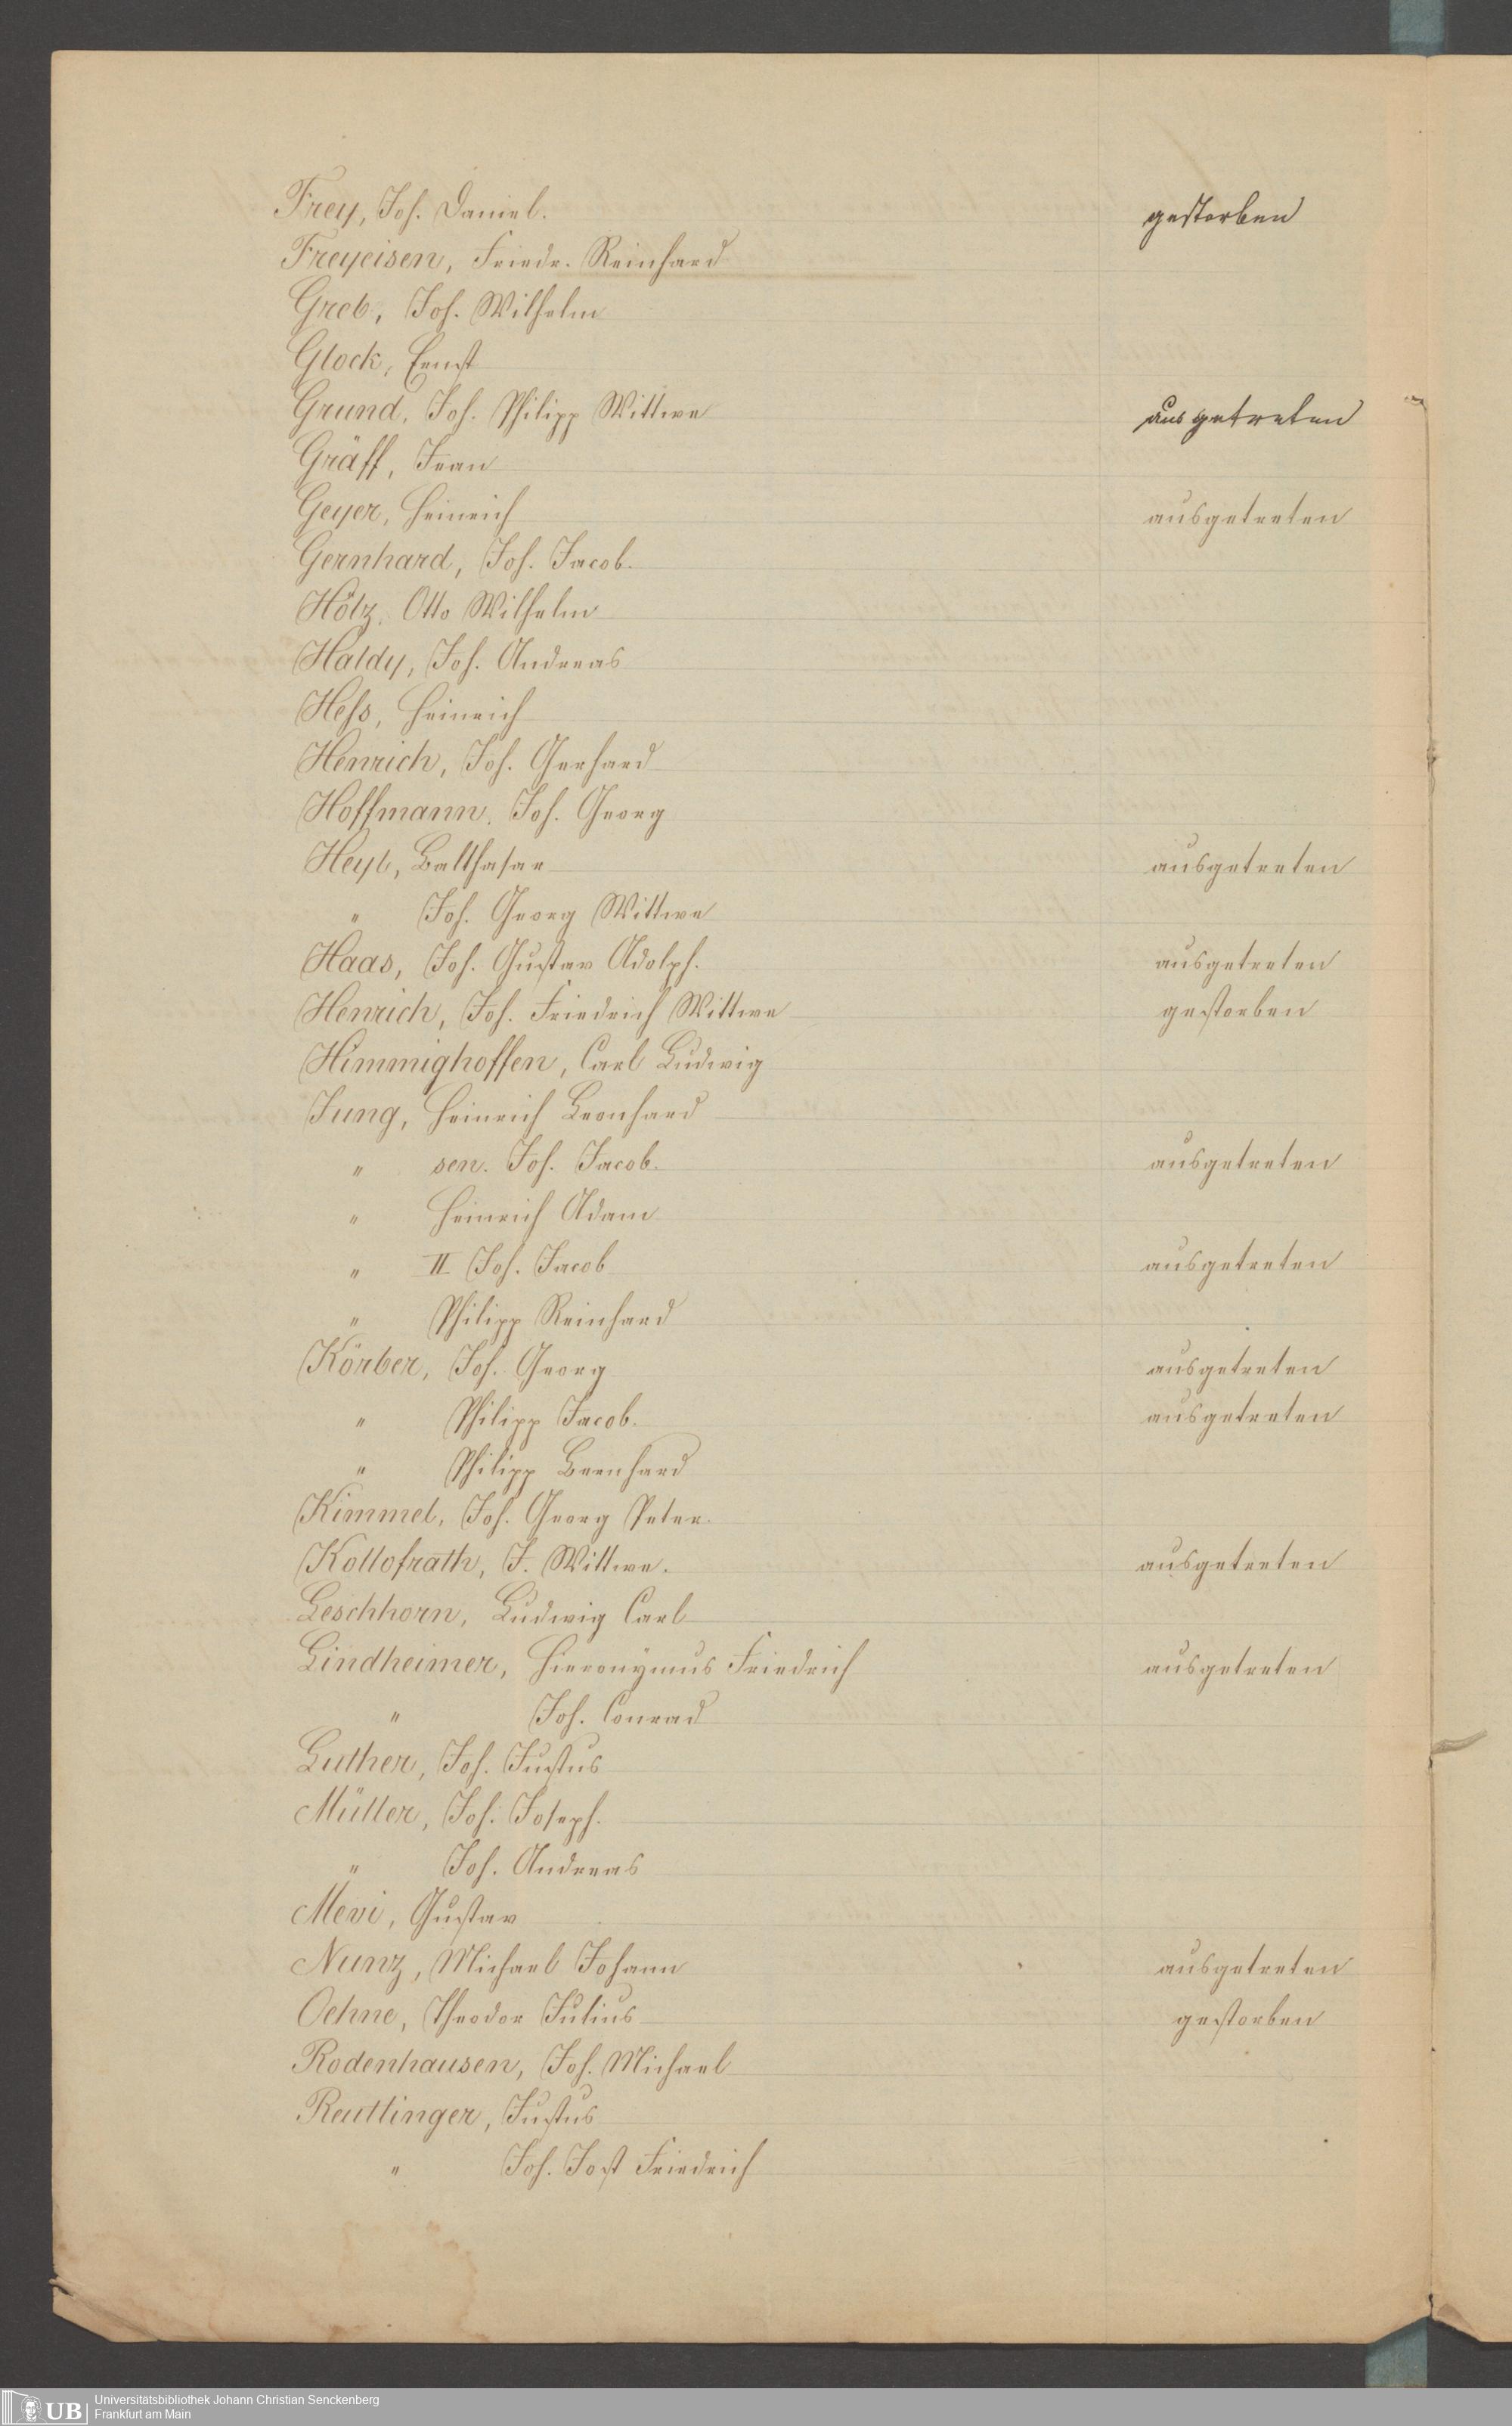 Frey, Joh. Daniel. gestorben
Freyeisen, Friedr. Reinhard
Greb, Joh. Wilhelm
Glock, Ernst
Grund, Joh. Philipp Wittwe ausgetreten
Gräff, Jean
Geyer, Heinrich ausgetreten
Gernhard, Joh. Jacob.
Hölz, Otto Wilhelm
Haldy, Joh. Andreas
Heſs, Heinrich
Henrich, Joh. Gerhard
Hoffmann, Joh. Georg
Heyl, Balthasar ausgetreten
" Joh. Georg Wittwe
Haas, Joh. Gustav Adolph. ausgetreten
Henrich, Joh. Friedrich Wittwe gestorben
Himmighoffen, Carl Ludwig
Jung, Heinrich Leonhard
" sen. Joh. Jacob. ausgetreten
" Heinrich Adam
" II Joh. Jacob ausgetreten
" Philipp Reinhard
Körber, Joh. Georg ausgetreten
" Philipp Jacob. ausgetreten
" Philipp Bernhard
Kimmel, Joh. Georg Peter.
Kollofrath, J. Wittwe. ausgetreten
Leschhorn, Ludwig Carl
Lindheimer, Hieronymus Friedrich ausgetreten
" Joh. Conrad
Luther, Joh. Justus
Müller, Joh. Joseph.
" Joh. Andreas
Mevi, Gustav
Nunz, Michael Johann ausgetreten
Oehne, Theodor Julius gestorben
Rodenhausen, Joh. Michael
Reutlinger, Justus
" Joh. Jost Friedrich
UB
Universitätsbibliothek Johann Christian Senckenberg
Frankfurt am Main